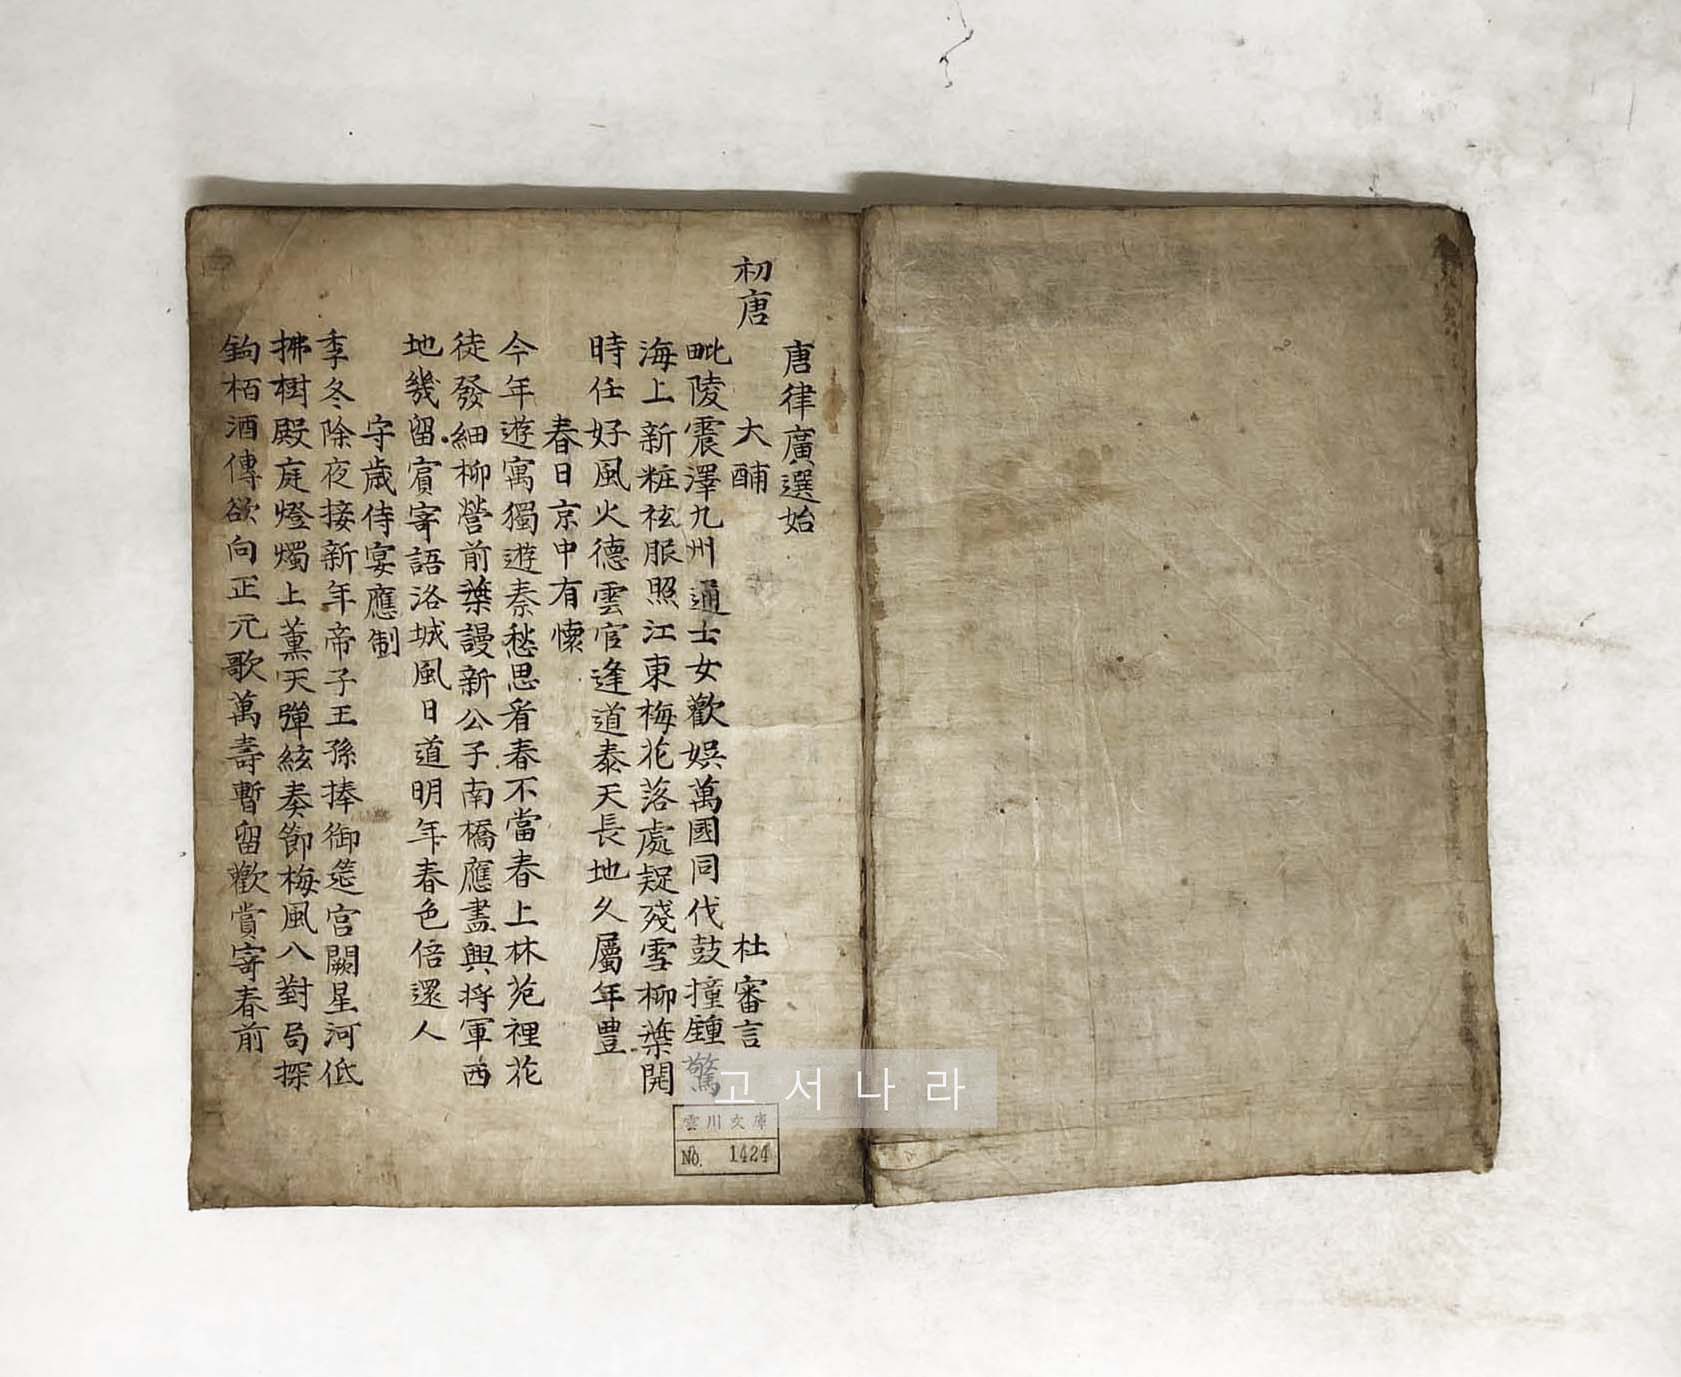 唐律廣選始
初唐
大酺 杜審言
毗陵震澤九州通士女歡娛萬國同伐鼓撞鍾驚
海上新粧袨服照江東梅花落處疑殘雪柳葉開
時任好風火德雲官逢道泰天長地久屬年豊
春日京中有懷
今年遊寓獨遊秦愁思看春不當春上林苑裡花
徒發細柳營前葉謾新公子南橋應盡興將軍西
地幾留賓寄語洛城風日道明年春色倍還人
守歲侍宴應制
季冬除夜接新年帝子王孫捧御筵宮闕星河低
拂樹殿庭燈燭上薰天彈絃奏節梅風八對局探
鉤栢酒傳欲向正元歌萬壽暫留歡賞寄春前
고서나라
雲川文庫
No. 1424